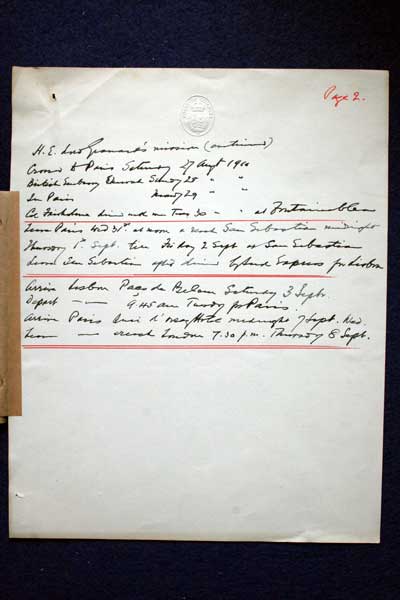 Page 2.
H. E. Lord Granard's mission (continued)
Crossed to Paris Saturday 27 Augt 1910
British Embassy Sunday 28 " "
In Paris Monday 29 " "
dined with me Tues 30 " - at Fontainebleau
Leave Paris Wed 31st at noon & reach San Sebastian midnight
Thursday 1st Sept. till Friday 2 Sept at San Sebastian
Leave San Sebastian after dinner by Sud Express for Lisbon
Arrive Lisbon Paço de Belem Saturday 3 Septr.
Depart — 9.45 am Tuesday for Paris.
Arrive Paris Quai d'Orsay Hotel midnight 7 Sept. Wed.
Leave — reach London 7.30 p.m. Thursday 8 Sept.